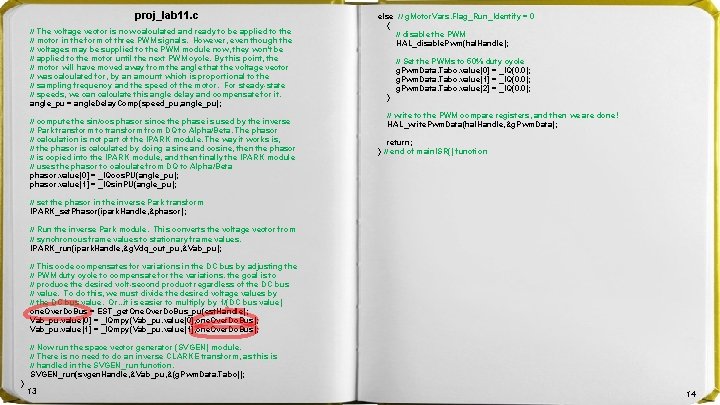 proj_lab11. c
// The voltage vector is now calculated and ready to be applied to the
// motor in the form of three PWM signals. However, even though the
// voltages may be supplied to the PWM module now, they won't be
// applied to the motor until the next PWM cycle. By this point, the
// motor will have moved away from the angle that the voltage vector
// was calculated for, by an amount which is proportional to the
// sampling frequency and the speed of the motor. For steady-state
// speeds, we can calculate this angle delay and compensate for it.
angle_pu = angleDelayComp(speed_pu,angle_pu);
// compute the sin/cos phasor since the phase is used by the inverse
// Park transform to transform from DQ to Alpha/Beta. The phasor
// calculation is not part of the IPARK module. The way it works is,
// the phasor is calculated by doing a sine and cosine, then the phasor
// is copied into the IPARK module, and then finally the IPARK module
// uses the phasor to calculate from DQ to Alpha/Beta
phasor.value[0] = _IQcosPU(angle_pu);
phasor.value[1] = _IQsinPU(angle_pu);
// set the phasor in the inverse Park transform
IPARK_setPhasor(iparkHandle,&phasor);
// Run the inverse Park module. This converts the voltage vector from
// synchronous frame values to stationary frame values.
IPARK_run(iparkHandle,&gVdq_out_pu,&Vab_pu);
// This code compensates for variations in the DC bus by adjusting the
// PWM duty cycle to compensate for the variations. the goal is to
// produce the desired volt-second product regardless of the DC bus
// value. To do this, we must divide the desired voltage values by
// the DC bus value. Or...it is easier to multiply by 1/(DC bus value)
oneOverDcBus = EST_getOneOverDcBus_pu(estHandle);
Vab_pu.value[0] = _IQmpy(Vab_pu.value[0],oneOverDcBus);
Vab_pu.value[1] = _IQmpy(Vab_pu.value[1],oneOverDcBus);
// Now run the space vector generator (SVGEN) module.
// There is no need to do an inverse CLARKE transform, as this is
// handled in the SVGEN_run function.
SVGEN_run(svgenHandle,&Vab_pu,&(gPwmData.Tabc));
}
13
else // gMotorVars.Flag_Run_Identify = 0
{
// disable the PWM
HAL_disablePwm(halHandle);
// Set the PWMs to 50% duty cycle
gPwmData.Tabc.value[0] = _IQ(0.0);
gPwmData.Tabc.value[1] = _IQ(0.0);
gPwmData.Tabc.value[2] = _IQ(0.0);
}
// write to the PWM compare registers, and then we are done!
HAL_writePwmData(halHandle,&gPwmData);
return;
} // end of mainISR() function
14